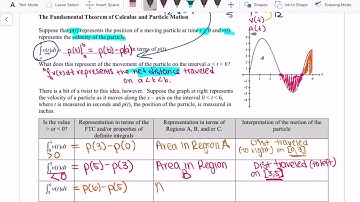 The Fundamental Theorem of Calculus and Particle Motion
Suppose that p(t) represents the position of a moving particle at time t ≥ 0 and v(t)
represents the velocity of the particle.
∫ v(t)dt = p(t)| = p(b) - p(a) in terms of p(t).
What does this represent of the movement of the particle on the interval a < t < b?
∫ v(t)dt represents the net distance traveled
on a<t<b.
There is a bit of a twist to this idea, however. Suppose the graph at right represents
the velocity of a particle as it moves along the x – axis on the interval 0 < t < 6,
where t is measured in seconds and p(t), the position of the particle, is measured in
inches.
v(t)
p(t)
12
A
Is the value
> or < 0?
Representation in terms of the
FTC and/or properties of
definite integrals
Representation in terms of
Regions A, B, and/or C.
Interpretation of the motion of the
particle
∫ v(t)dt > 0
= p(3) - p(0)
Area in Region A
Dist traveled
(to right) on [0,3]
∫ v(t)dt < 0
= p(5) - p(3)
Area in Region
B
Dist traveled (to left)
on [3,5]
∫ v(t)dt
= p(6) - p(5)